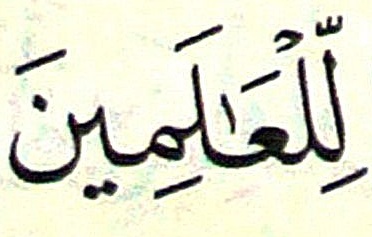 لِّلۡعَٰلَمِينَ